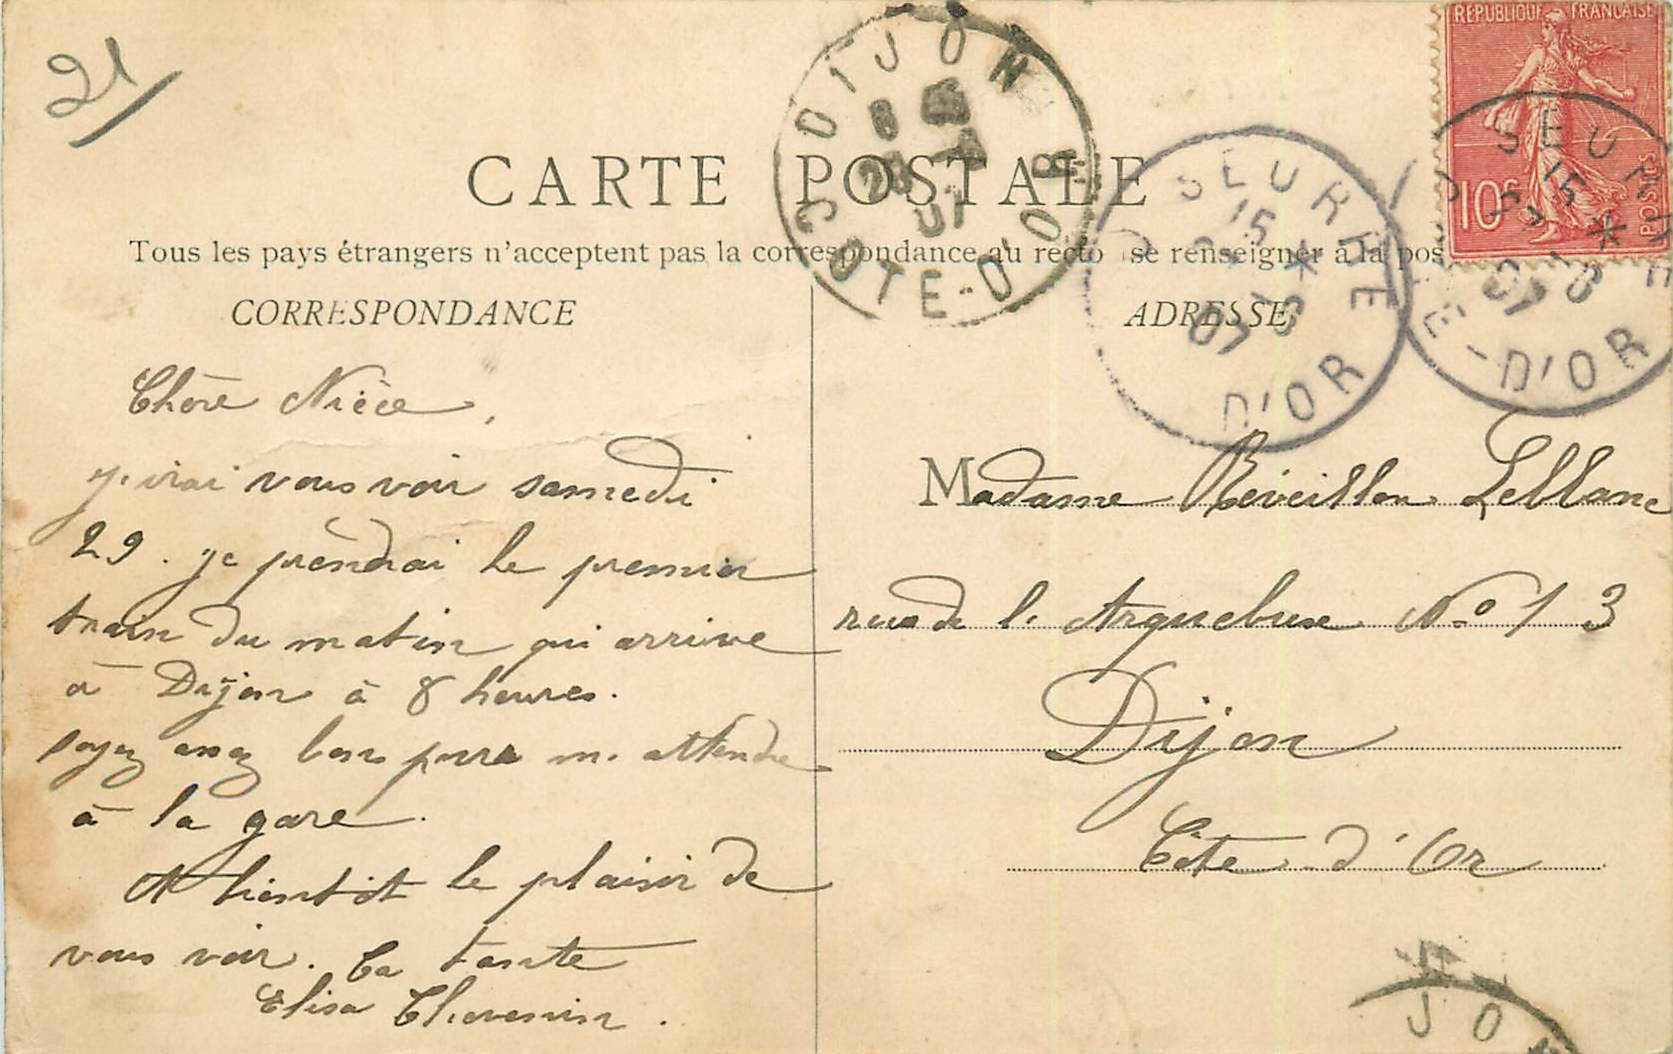 21
RÉPUBLIQUE FRANÇAISE
10c
POSTES
DIJON
COTE-D'OR
8
07
SEURRE
15
07
D'OR
SEURRE
15
07
E-D'OR
CARTE POSTALE
Tous les pays étrangers n'acceptent pas la correspondance au recto se renseigner à la pos
CORRESPONDANCE
ADRESSE
Chère Nièce,
j'irai vous voir samedi
29. je prendrai le premier
train du matin qui arrive
à Dijon à 8 heures.
soyez assez bons pour m'attendre
à la gare.
A bientôt le plaisir de
vous voir. Ta tante
Elisa Thevenin.
Madame Réveillon Leblanc
rue de l'Arquebuse No 13
Dijon
Côte-d'Or
JO